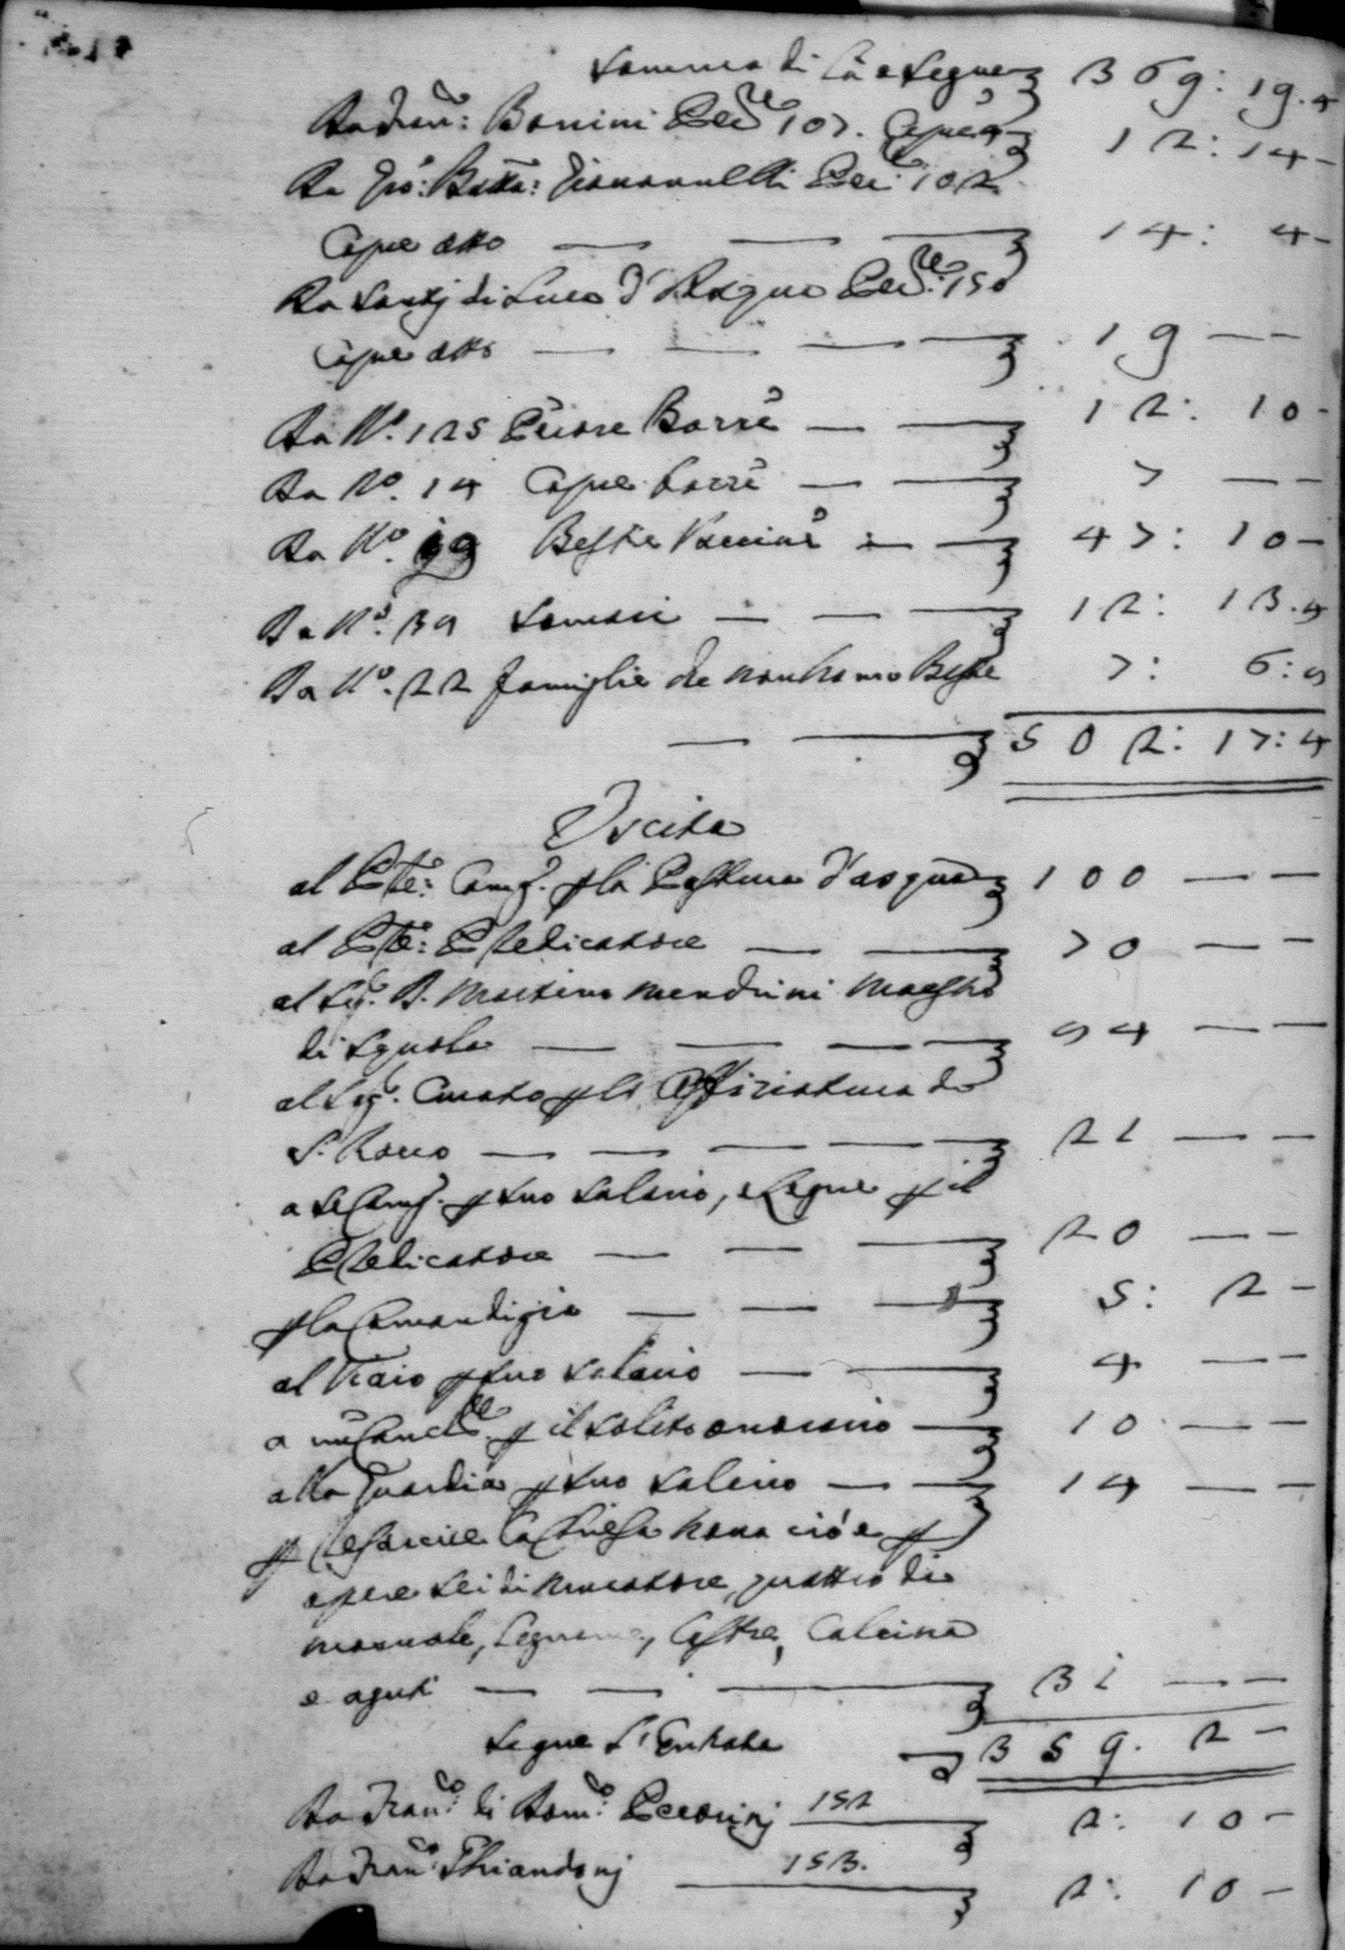 Somma di là e segue 369: 19. 4
Da Fran:co Bonini Pec:re 107. Capre 9 12: 14 -
Da Gio: Batta: Giovannelli Pec:re 102
Capre otto 14: 4 -
Da Santj di Luca d'Asqua Pec:re 150
Capre otto 19 — —
Da N.o 125 Pecore Barrè 12: 10 -
Da No. 14 Capre barrè 7 — —
Da No. 19 Bestie Vaccine 47: 10 -
Da No. 39 Somari 12: 13. 4
Da No. 22 famiglie che non hanno Bestie 7: 6: 8
502: 17: 4
Uscita
al Pte: Cam:o p la Pastura d'asqua 100 — —
al Pte: Predicatore 70 — —
al Sig:r B. Martino Mendrini Maestro
di Squola 94 — —
al Sig:r Curato p la Offiziatura di
S. Rocco 21 — —
a Se Cam:o p suo salario, e Legne p il
Predicatore 20 — —
p la Comandigia 5: 2 -
al Vicario p suo salario 4 — —
a me Canc:re p il solito onorario 10 — —
alla Guardia p suo salario 14 — —
p resarcire la Chiesa nova cioè p
opere sei di muratore, quattro di
manuale, Legname, Lastre, Calcina
e aguti 31 — —
Segue L'Entrata 359. 2 -
Da Fran:co di Dom:co Pecorinj 152 2: 10 -
Da Fran:co Chiandonj 153. 2: 10 -